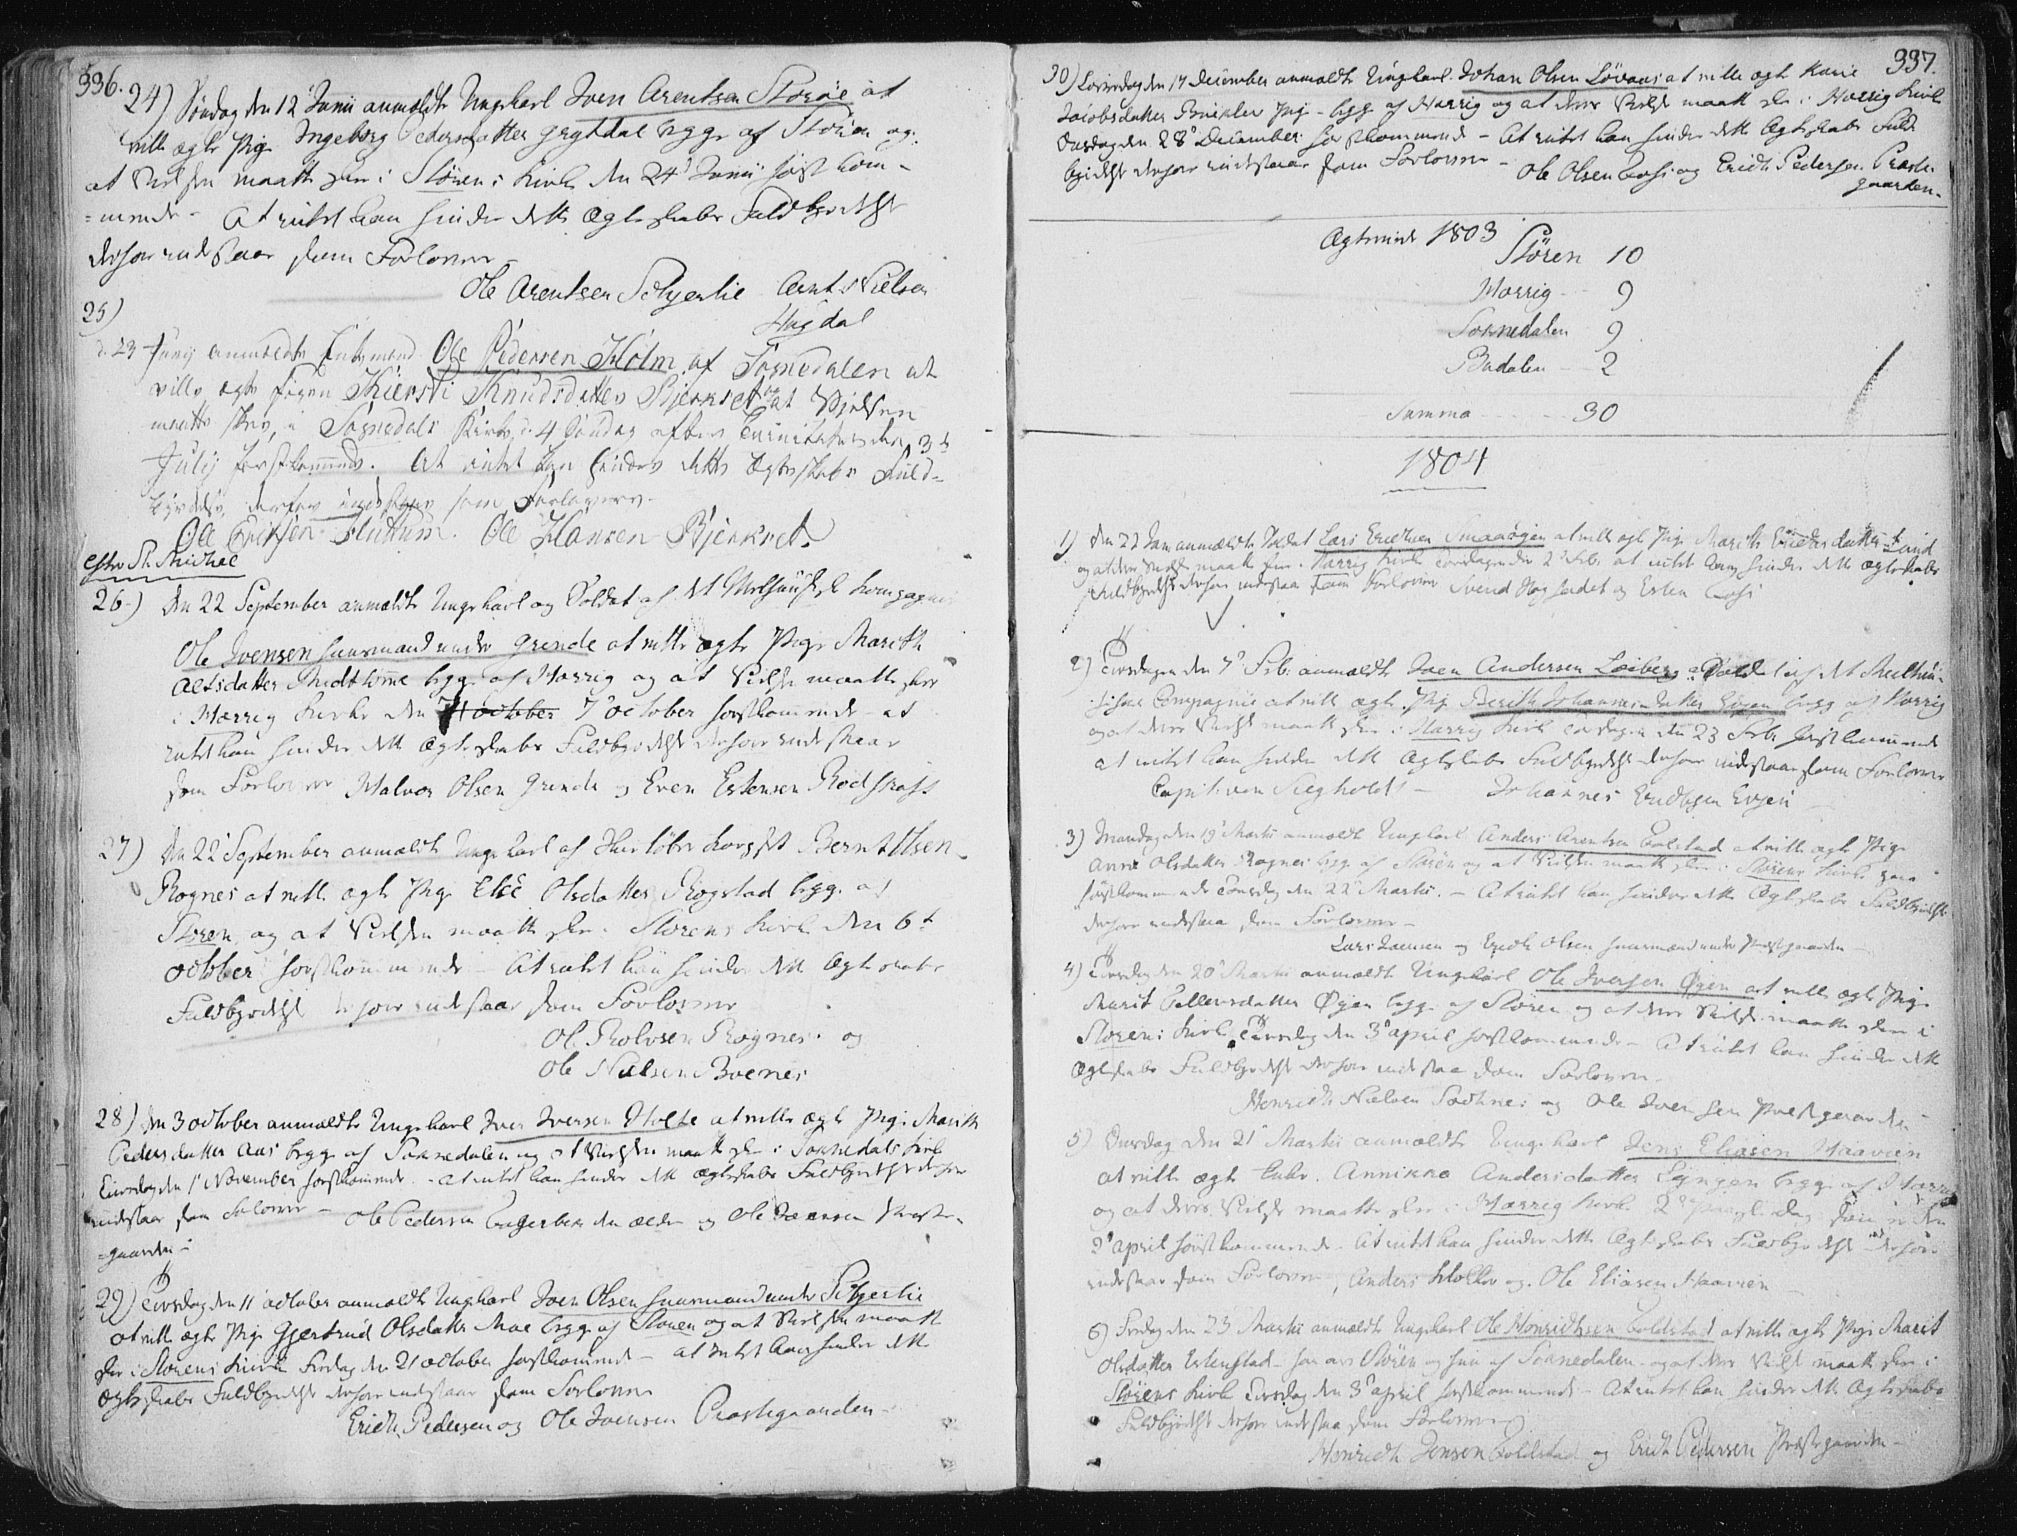 336.
24) Søndag den 12 Junii anmeldte Ungkarl Joen Arentsen Storøe at
ville ægte Pige Ingeborg Pedersdatter Grytdal begge af Støren og
at Vielsen maatte skee i Størens Kirke den 24 Junii først kom-
mende - At intet kan hindre dette Ægteskabs Fuldbyrdelse
derfore indestaaer som Forlovere
Ole Arentsen Solgerlie Arnt Nielsen
Hagdal
25)
d. 23 Junij anmeldte Enkemand Ole Pedersen Holm af Sognedalen at
ville ægte Pigen Kiersti Knudsdatter Bjerkset og at Vielsen
maatte skee i Sognedals Kirke d. 4 Søndag efter Trinitatis den 3de
Julij førstkommende. At intet kan hindre dette Ægteskabs Fuld-
byrdelse, derfor indestaaer som Forlovere.
Ole Eriksen Hutum. Ole Hansen Bjerkset.
efter St. Michel
26.) Den 22 September anmeldte Ungekarl og Soldat af det Kompagnie
Ole Joensen Huusmand under Grinde at ville ægte Pige Marith
Olsdatter Midthome begge af Horrig og at Vielse maatte skee
i Horrig Kirke den 7 october førstkommende at
intet kan hindre dette Ægteskabs Fuldbyrdelse derfore indestaaer
som Forlovere Halvor Olsen Grinde og Even Estensen Rodskaft
27) Den 22 September anmeldte Ungekarl af Bernt Olsen
Rognes at ville ægte Pige Else Olsdatter Rogstad begge af
Støren og at Vielsen maatte skee i Størens Kirke den 6te
october førstkommende - At intet kan hindre dette Ægteskabs
Fuldbyrdelse derfore indestaaer som Forlovere
Ole Rolvsen Rognes og
Ole Nielsen Boenes
28) Den 3 october anmeldte Ungekarl Iver Iversen Holte at ville ægte Pige Marith
Pedersdatter Aas begge af Soknedalen og at Vielsen maatte skee i Soknedals Kirke
Tirsdag den 1 November førstkommende - At intet kan hindre dette Ægteskabs Fuldbyrdelse derfore
indestaaer som Forlovere - Ole Pedersen den ældre og Ole Joensen Præste-
gaarden -
29) Tirsdag den 11 october anmeldte Ungekarl Joen Olsen Huusmand under Solgerlie
at ville ægte Pige Gjertrud Olsdatter Moe begge af Støren og at Vielsen maatte
skee i Størens Kirke Fredag den 21 october førstkommende - at intet kan hindre dette
Ægteskabs Fuldbyrdelse derfore indestaaer som Forlovere
Erich Pedersen og Ole Joensen Præstegaarden -
337.
30) Løverdag den 17 December anmeldte Ungkarl Johan Olsen Løvaas at ville ægte Karie
Jacobsdatter Pige begge af Horrig og at deres Vielse maatte skee i Horrig Kirke
Onsdag den 28 December førstkommende - At intet kan hindre dette Ægteskabs Fuld-
byrdelse derfore indestaaer som Forlovere - Ole Olsen Fossi og Erich Pedersen Præste-
gaarden -
Ægteviede 1803
Støren 10
Horrig 9
Soknedalen 9
Budalen 2
Summa 30
1804
1) Den 22 Jan anmeldte Soldat Lars Erichsen Smaaøgen at ville ægte Pige Marith Erichsdatter Lund
og at deres Vielse maatte skee i Horrig Kirke Torsdagen den 2 Febr. at intet kan hindre dette Ægteskabs
Fuldbyrdelse derfore indestaae som Forlovere Svend og Esten Fossi
2) Tirsdagen den 7 Febr anmeldte Joen Andersen Løiberg Soldat af det
Compagnie at ville ægte Pige Berith Johannesdatter Evjen begge af Horrig
og at deres Vielse maatte skee i Horrig Kirke Torsdagen den 23 Febr førstkommende
at intet kan hindre dette Ægteskabs Fuldbyrdelse derfore indestaaer som Forlovere
Capit. von Siegholdt - Johannes Evjen
3) Mandag den 19 Martii anmeldte Ungkarl Anders Arentsen Folstad at ville ægte Pige
Anne Olsdatter Rognes begge af Støren og at Vielsen maatte skee i Størens Kirke
førstkommende den 22 Martii. - At intet kan hindre dette Ægteskabs Fuldbyrdelse
derfore indestaae som Forlovere -
Lars Joensen og Erich Olsen Huusmænd under Præstgaarden -
4) Tirsdag den 20 Martii anmeldte Ungekarl Ole Iversen Øyen at ville ægte Pige
Marit Pellersdatter Øyen begge af Støren og at deres Vielse maatte skee i
Størens Kirke Tirsdag den 3 april førstkommende - At intet kan hindre dette
Ægteskabs Fuldbyrdelse derfore indestaae som Forlovere -
Henrich Nielsen og Ole Joensen Præstgaarden
5) Onsdag den 21 Martii anmeldte Ungekarl Jens Eliasen Haavien
at ville ægte Enke Annikka Andersdatter Lyngen begge af Horrig
og at deres Vielse maatte skee i Horrig Kirke 2 den
2 april førstkommende - At intet kan hindre dette Ægteskabs Fuldbyrdelse derfore
indestaaer som Forlovere, Anders og Ole Eliasen Haavien
6) Fredag den 23 Martii anmeldte Ungekarl Ole Henrichsen Foldstad at ville ægte Pige Marit
Olsdatter Estenstad - han av Støren og hun af Soknedalen - og at deres Vielse maatte skee i
Størens Kirke Tirsdag den 3 april førstkommende - At intet kan hindre dette Ægteskabs
Fuldbyrdelse derfore indestaae som Forlovere
Henrich Jensen Foldstad og Erich Pedersen Præstegaarden -